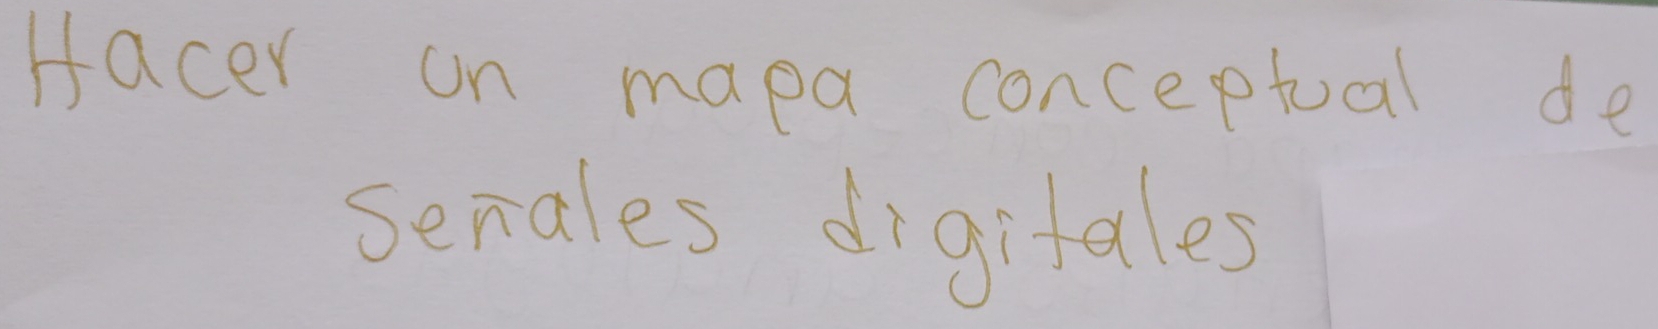 Hacer un mapa conceptual de
señales digitales